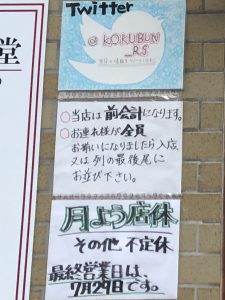 堂
Twitter
@KOKUBUN
_RS
○当店は前会計になります。
○お連れ様が全員
お揃いになりましたら入店
又は列の最後尾に
お並び下さい。
月よう店休
その他 不定休
最終営業日は、
7月29日です。